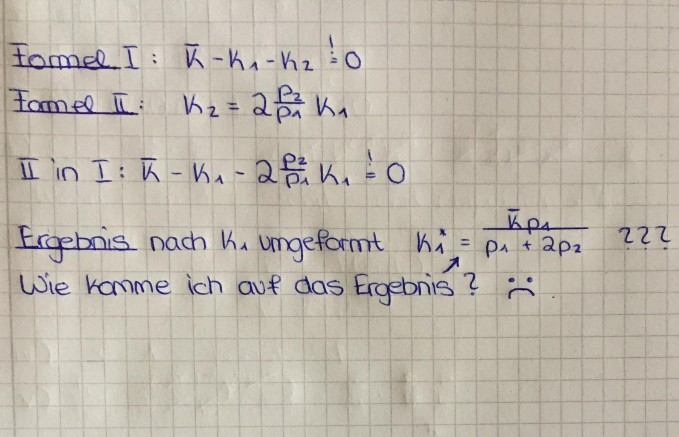 Formel I : K̄ - K₁ - K₂ =! 0
Formel II : K₂ = 2 p₂/p₁ K₁
II in I : K̄ - K₁ - 2 p₂/p₁ K₁ =! 0
Ergebnis nach K₁ umgeformt K₁* = K̄p₁ / (p₁ + 2p₂) ???
Wie komme ich auf das Ergebnis? :(